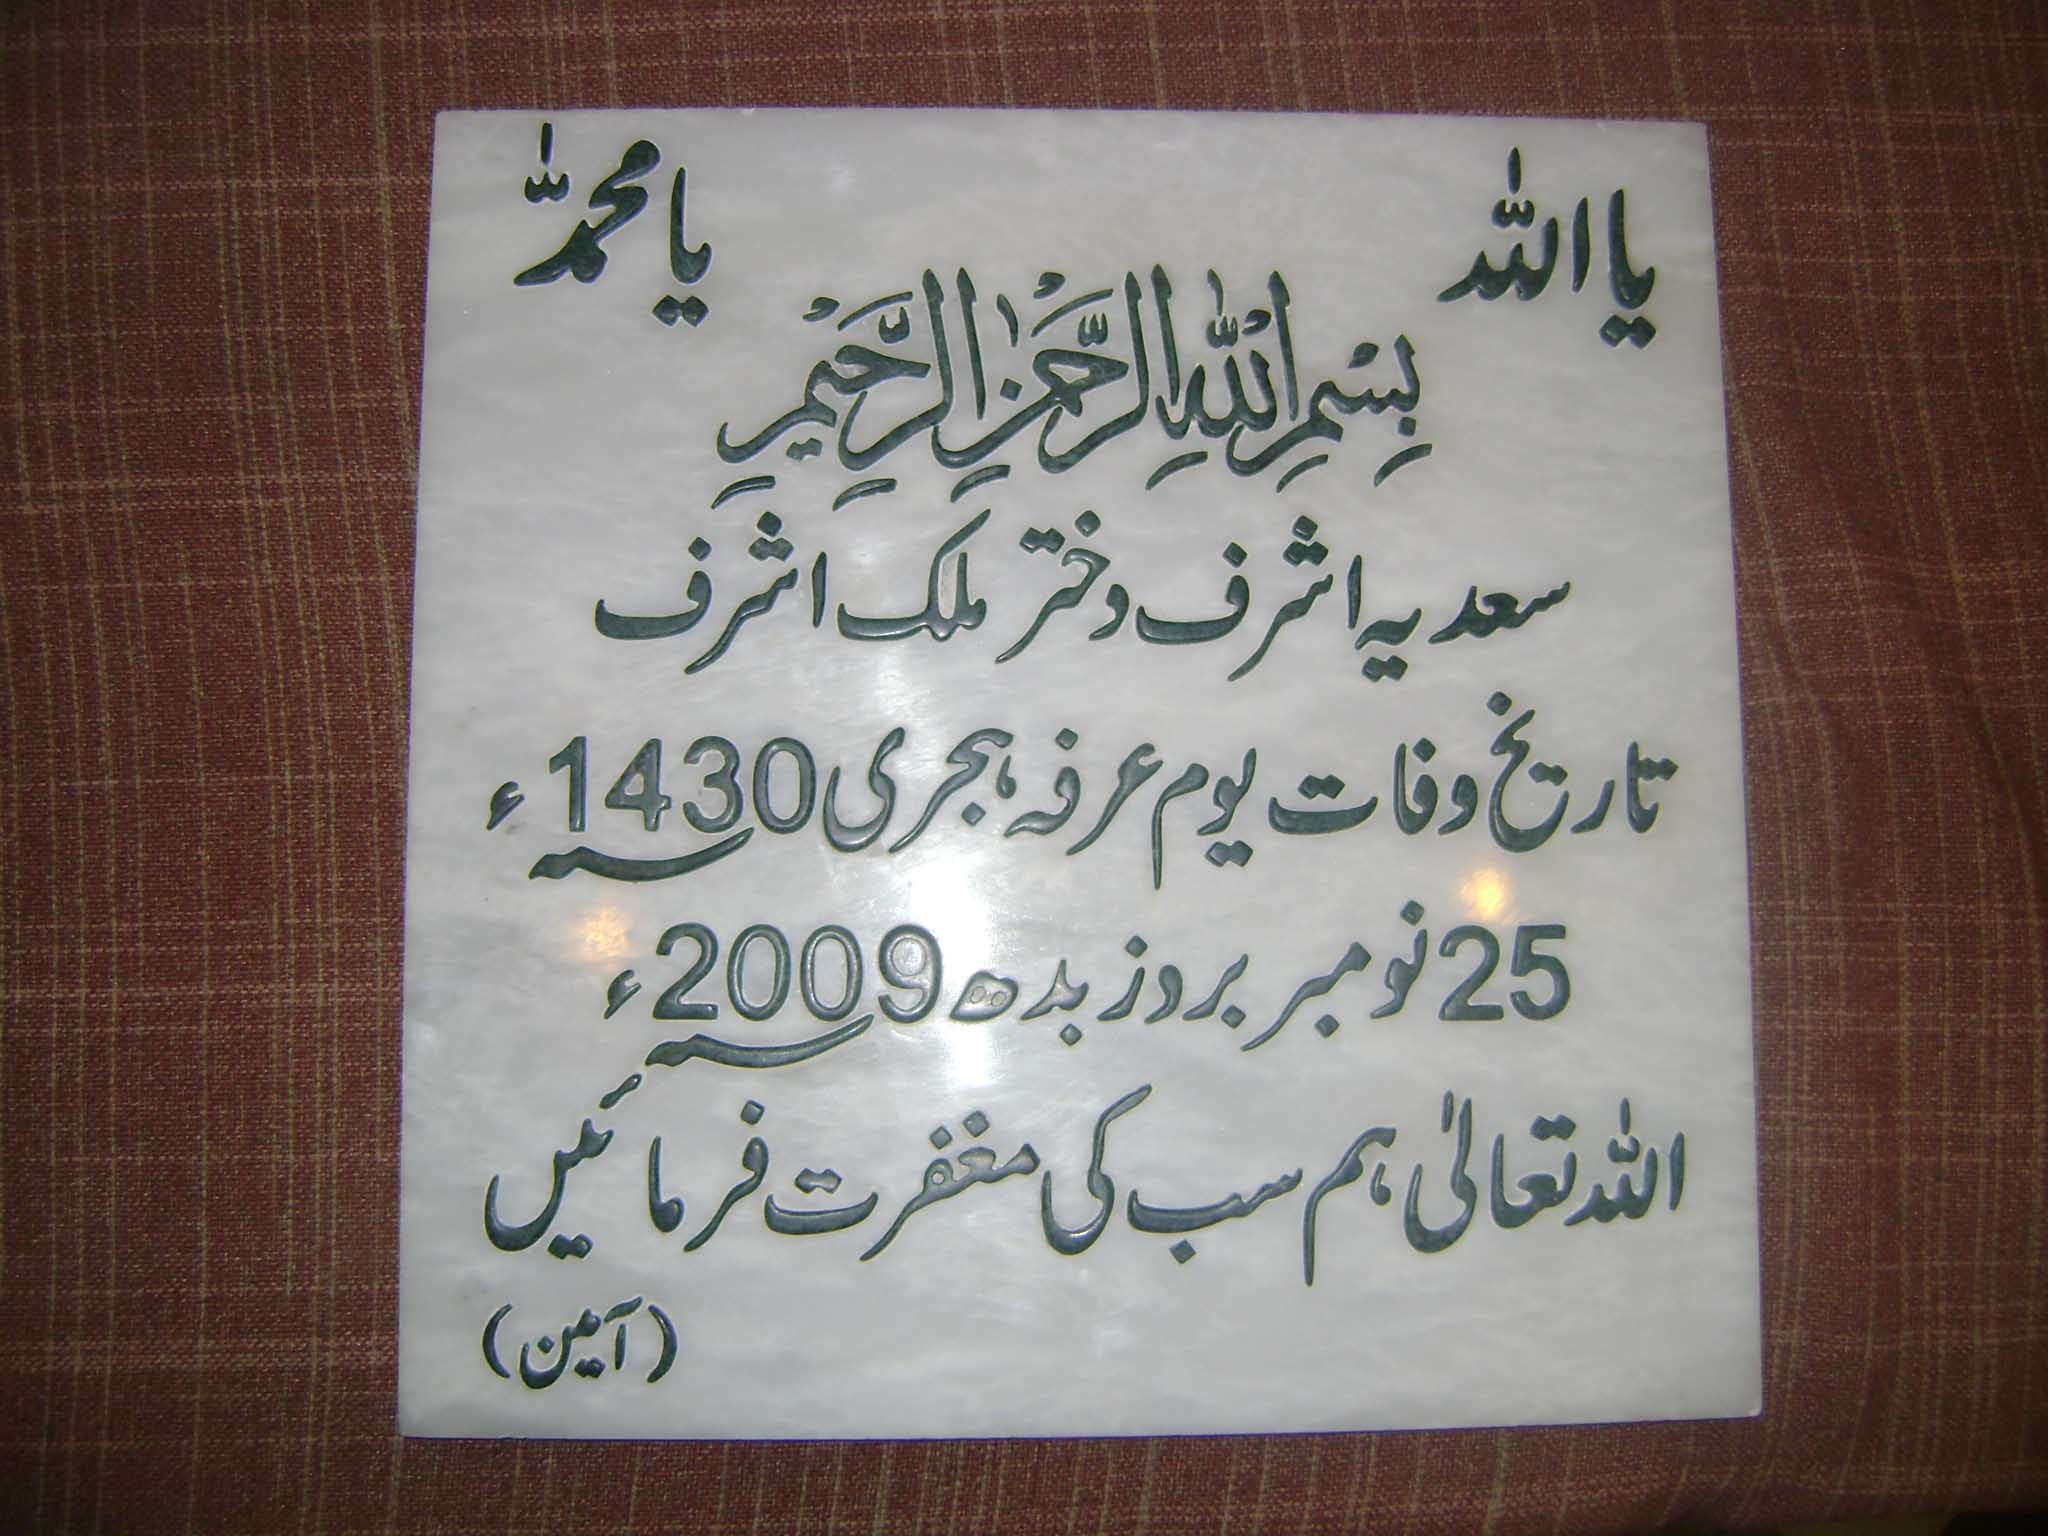 یا اللہ یا محمدؐ
بِسْمِ اللهِ الرَّحْمٰنِ الرَّحِيْمِ
سعدیہ اشرف دختر ملک اشرف
تاریخ وفات یوم عرفہ ہجری 1430؁ء
25 نومبر بروز بدھ 2009؁ء
اللہ تعالیٰ ہم سب کی مغفرت فرمائیں
(آمین)